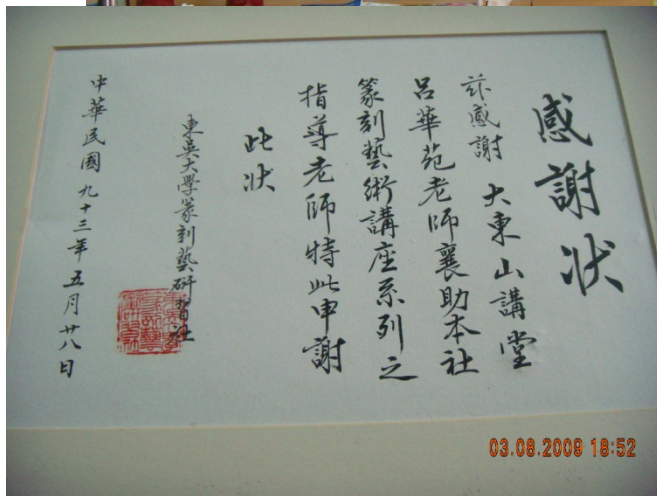 感謝狀
茲感謝 大東山講堂
呂華苑老師襄助本社
篆刻藝術講座系列之
指導老師特此申謝
此狀
東吳大學篆刻藝研習社
中華民國九十三年五月廿八日
03.08.2009 18:52